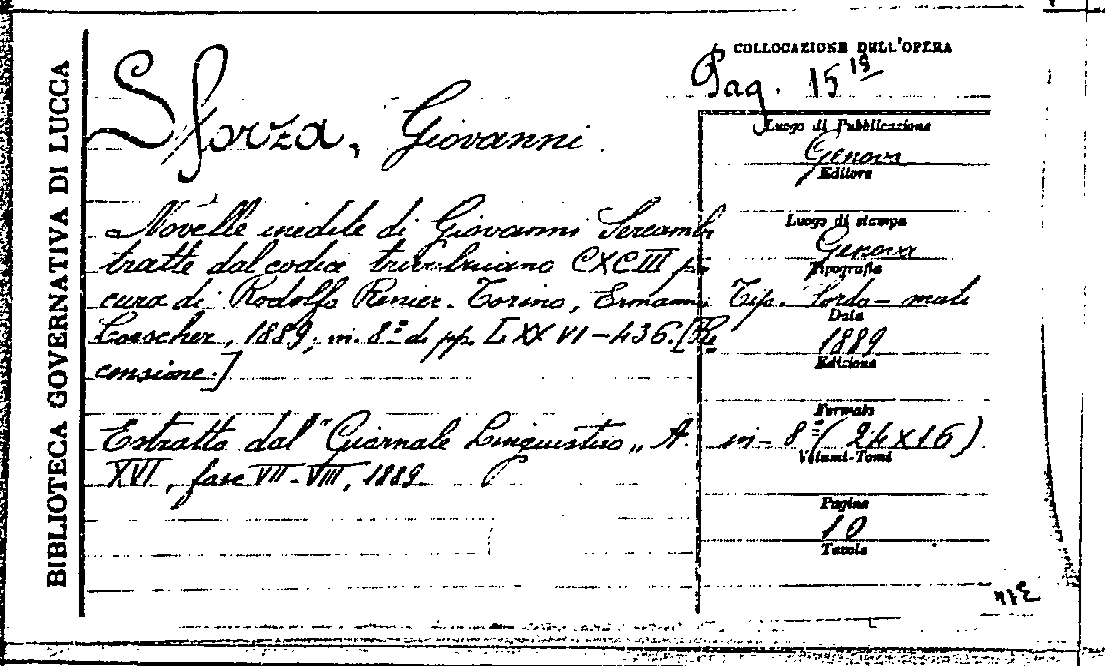 BIBLIOTECA GOVERNATIVA DI LUCCA
COLLOCAZIONE DELL'OPERA
Pag. 15 19
Sforza, Giovanni.
Luogo di Pubblicazione
Genova
Editore
Novelle inedite di Giovanni Sercambi
Luogo di stampa
Genova
tratte dal codice trivulziano CXCIII per
Tipografia
cura di Rodolfo Renier. Torino, Ermanno
Tip. Sordo-muti
Data
Loescher, 1889; in 8º di pp. LXXVI-436. [Re
1889
censione.]
Edizione
Formato
Estratto dal "Giornale Linguistico„ A.
in-8º (24x16)
Volumi-Tomi
XVI, fasc VII-VIII, 1889.
Pagine
10
Tavole